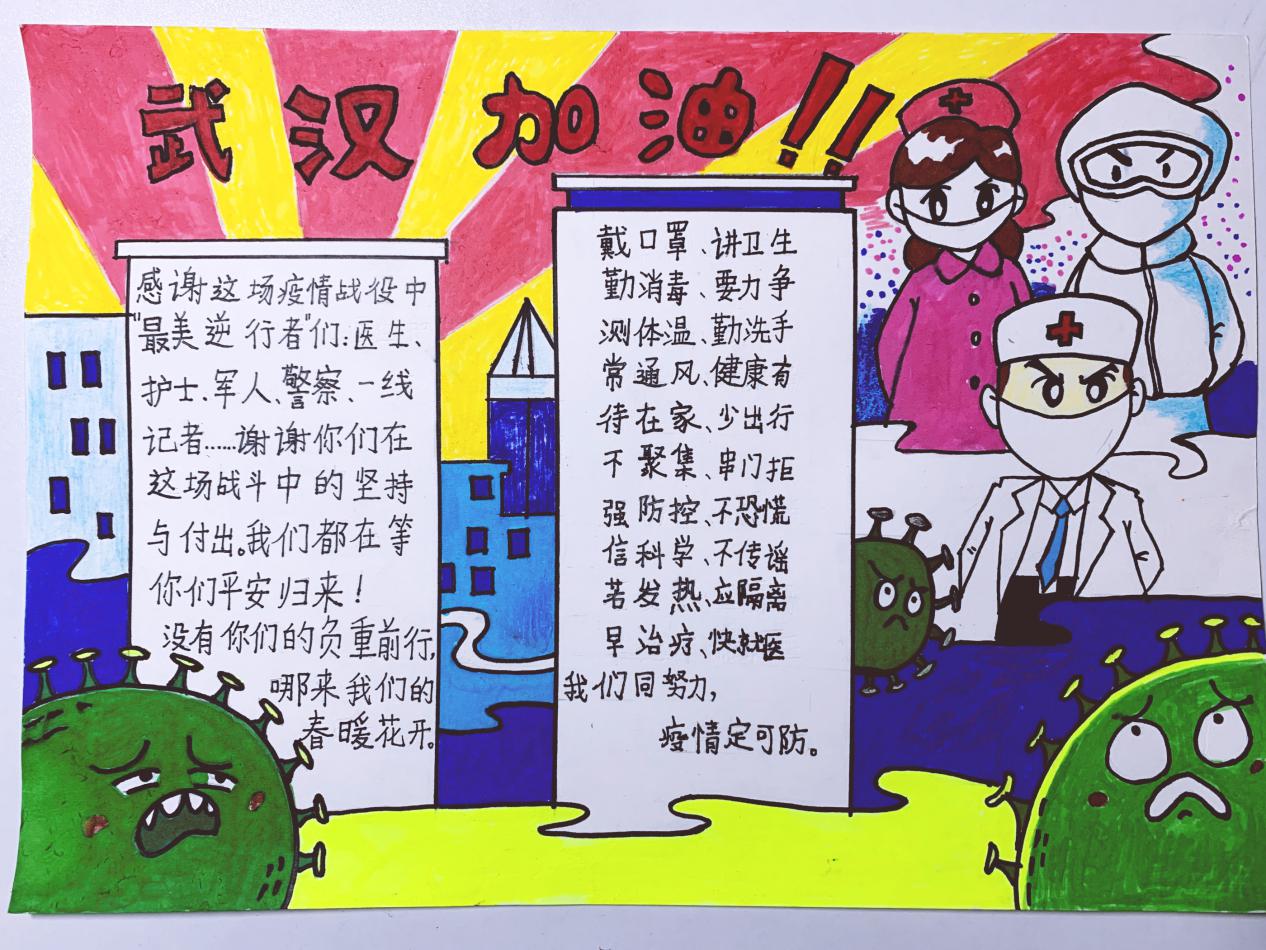 武汉加油!!
感谢这场疫情战役中
"最美逆行者"们:医生、
护士、军人、警察、一线
记者……谢谢你们在
这场战斗中的坚持
与付出。我们都在等
你们平安归来!
没有你们的负重前行,
哪来我们的
春暖花开。
戴口罩、讲卫生
勤消毒、要力争
测体温、勤洗手
常通风、健康有
待在家、少出行
不聚集、串门拒
强防控、不恐慌
信科学、不传谣
若发热、应隔离
早治疗、快就医
我们同努力,
疫情定可防。